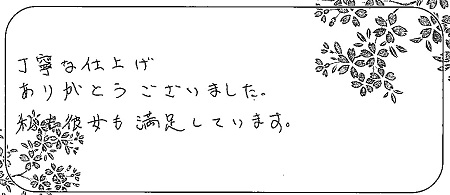 丁寧な仕上げ
ありがとうございました。
私も彼女も満足しています。